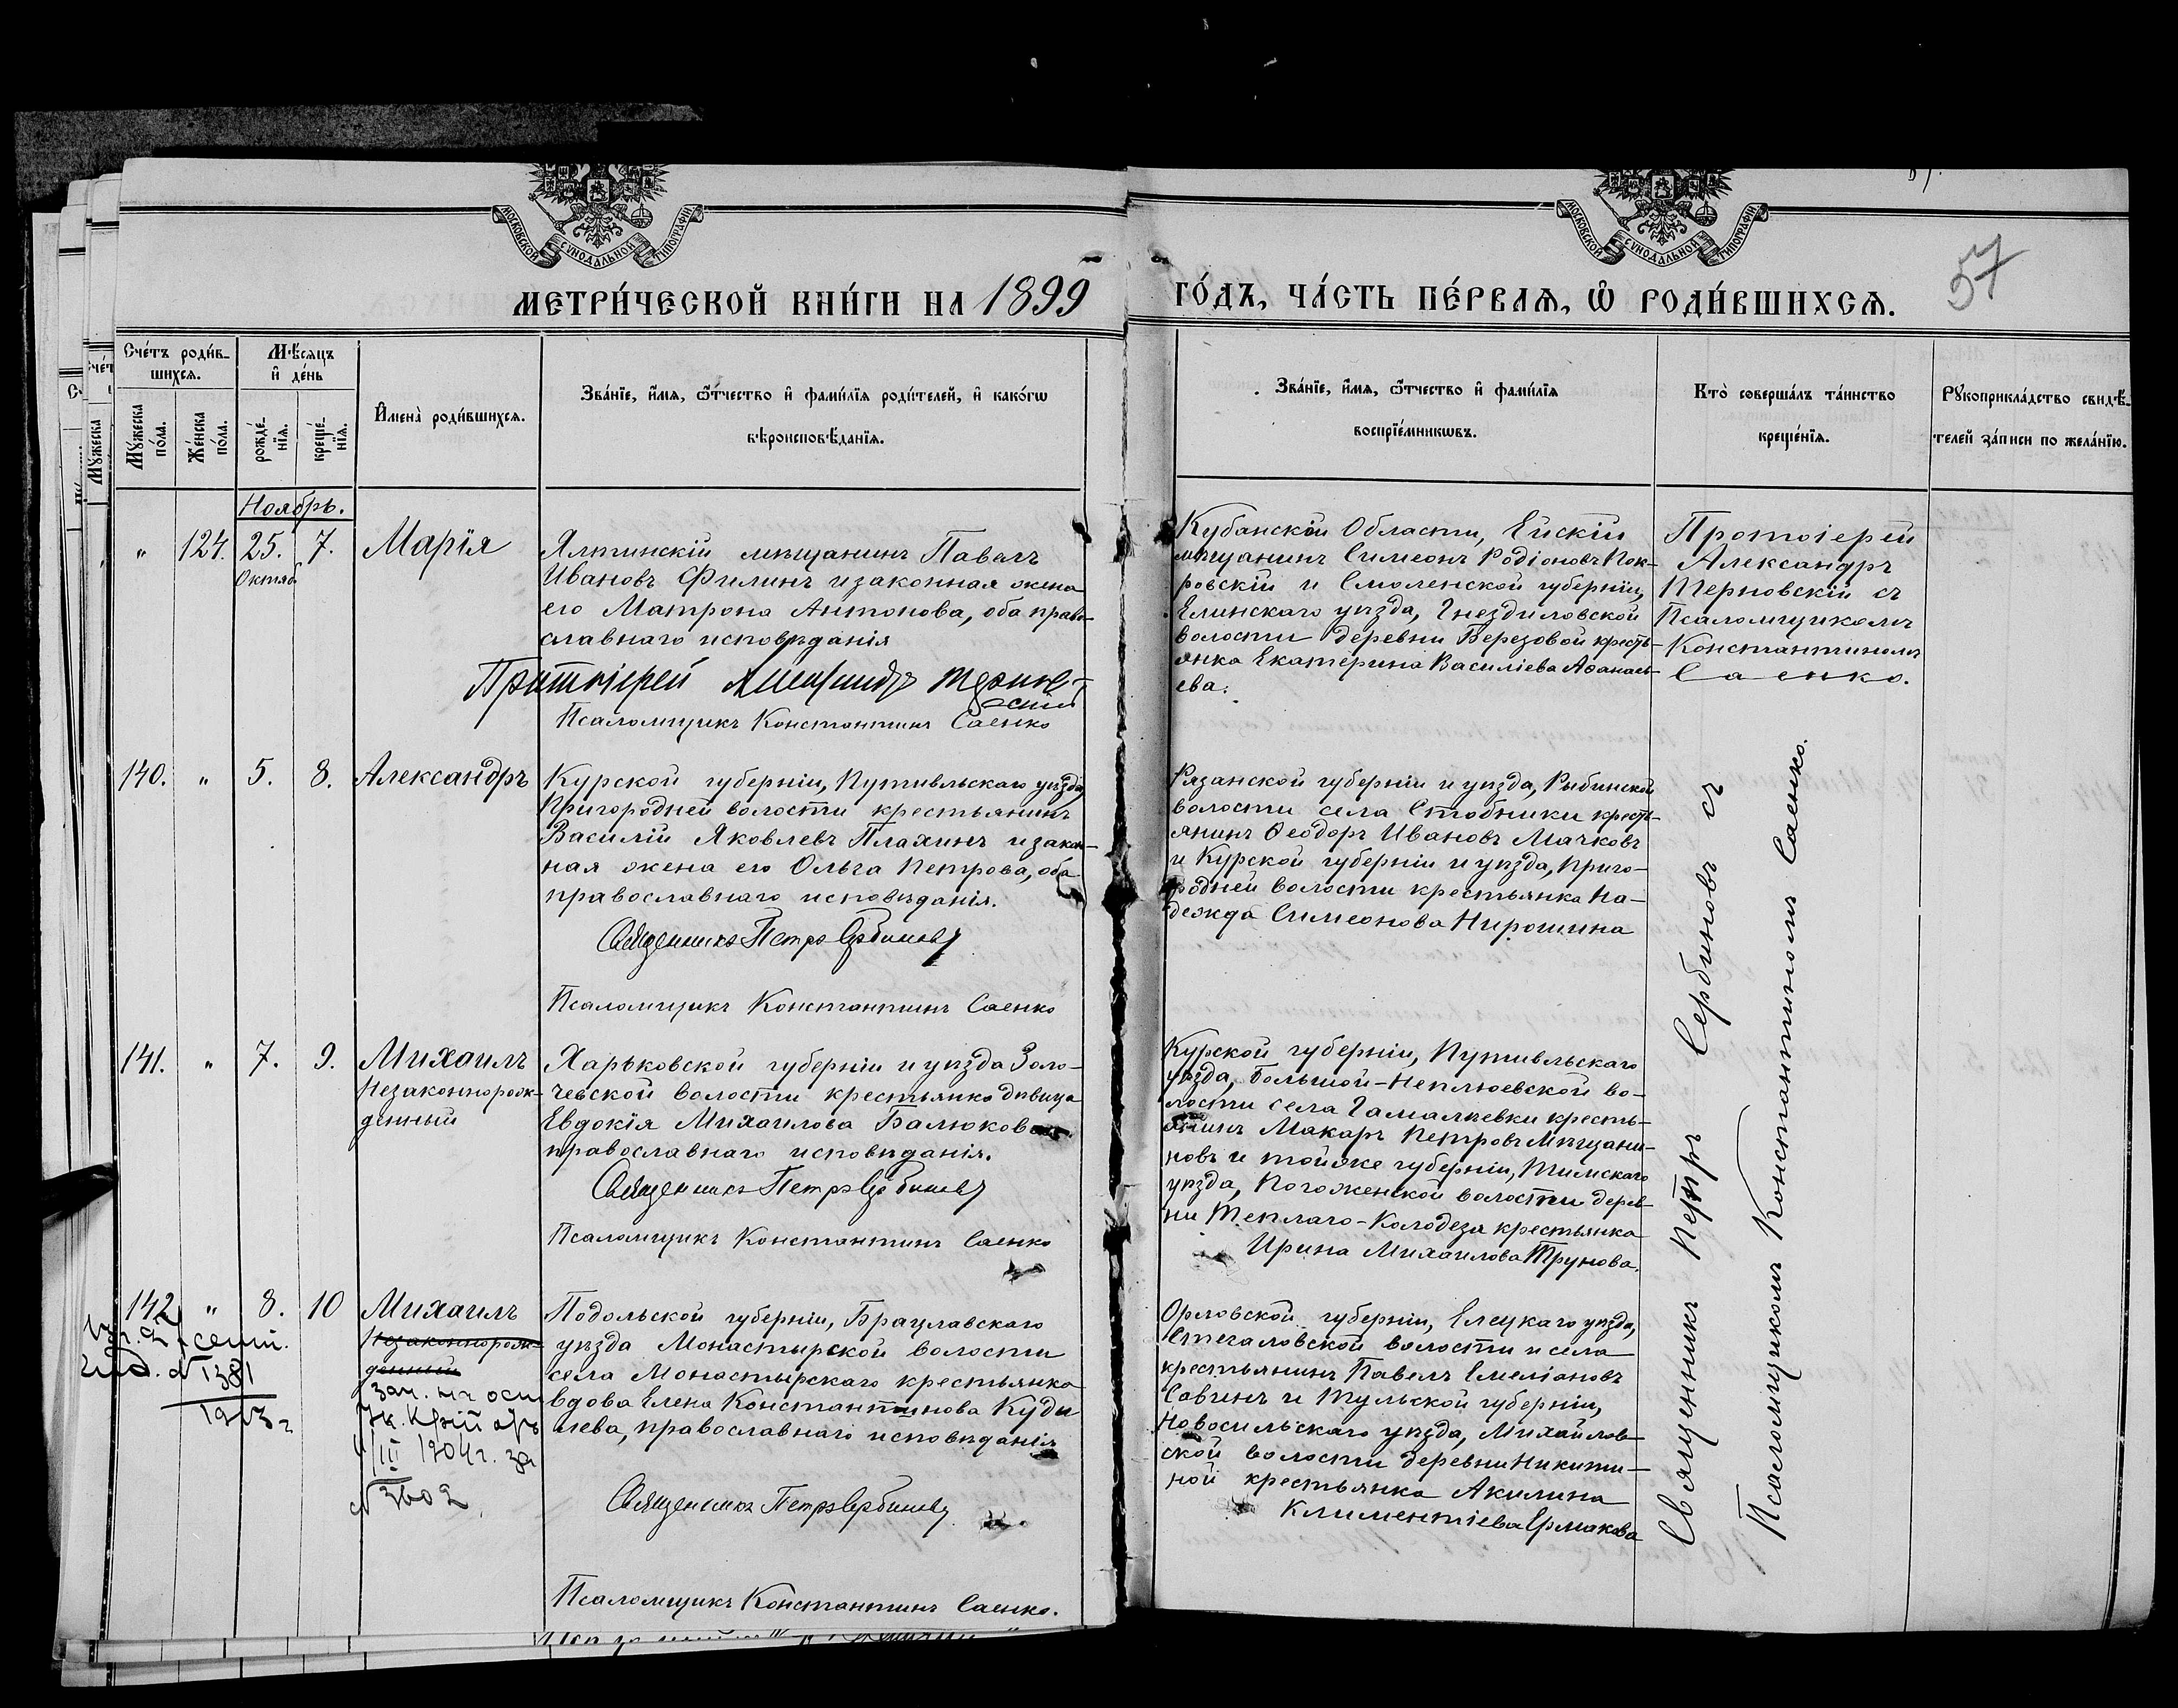 МОСКОВСКОЙ СѴНОДАЛЬНОЙ ТИПОГРАФІИ
МОСКОВСКОЙ СѴНОДАЛЬНОЙ ТИПОГРАФІИ
57
МЕТРИ́ЧЕСКОЙ КНИ́ГИ НА 1899 ГО́ДЪ, ЧА́СТЬ ПЕ́РВАѦ, Ѽ РОДИ́ВШИХСѦ.
Сче́тъ роди́в-
шихся.
Мѣ́сяцъ
и҆ де́нь
Му́жеска
по́ла.
Же́нска
по́ла.
рожде́-
нїя.
креще́-
нїя.
И҆мена̀ роди́вшихся.
Зва́нїе, и҆́мя, ѻ҆́тчество и҆ фами́лїя роди́телей, и҆ како́гѡ
вѣроисповѣ́данїя.
Зва́нїе, и҆́мя, ѻ҆́тчество и҆ фами́лїя
воспрїе́мникѡвъ.
Кто̀ соверша́лъ та́инство
креще́нїя.
Рꙋкоприкла́дство свидѣ́-
телей за́писи по жела́нїю.
Ноябрь.
" 124. 25. 7. Марія
Октяб
Ялтинскій мѣщанинъ Павелъ
Ивановъ Филинъ и законная жена
его Матрона Антонова, оба право-
славнаго исповѣданія
Протоіерей Александръ Тернов-
скій
Псаломщикъ Константинъ Саенко
Кубанской Области, Ейскій
мѣщанинъ Симеонъ Родіоновъ Пок-
ровскій и Смоленской губерніи,
Елинскаго уѣзда, Гнездиловской
волости деревни Березовой кресть-
янка Екатерина Василіева Афанась-
ева.
Протоіерей
Александръ
Терновскій съ
Псаломщикомъ
Константиномъ
Саенко.
140. " 5. 8. Александръ
Курской губерніи, Путивльскаго уѣзда,
Пригородней волости крестьянинъ
Василій Яковлевъ Плахинъ и закон-
ная жена его Ольга Петрова, оба
православнаго исповѣданія.
Священникъ Петръ Сербиновъ
Псаломщикъ Константинъ Саенко
Рязанской губерніи и уѣзда, Рыбинской
волости села Стобники кресть-
янинъ Ѳеодоръ Ивановъ Мачковъ
и Курской губерніи и уѣзда, Приго-
родней волости крестьянка На-
дежда Симеонова Нирошина
141. " 7. 9. Михаилъ
Незаконнорож-
денный
Харьковской губерніи и уѣзда Золо-
чевской волости крестьянка дѣвица
Евдокія Михаилова Балюкова
православнаго исповѣданія.
Священникъ Петръ Сербиновъ
Псаломщикъ Константинъ Саенко
Курской губерніи, Путивльскаго
уѣзда, Большой-Неплюевской во-
лости села Гамалѣевки кресть-
янинъ Макаръ Петровъ Мѣщани-
новъ и тойже губерніи, Тимскаго
уѣзда, Погоженской волости дерев-
ни Теплаго-Колодезя крестьянка
Ирина Михаилова Трунова.
142 " 8. 10 Михаилъ
Незаконнорож-
денный
зач. на осн
Ук.
III 1904 г. за
№ 3602
№ 1381
1913 г
Подольской губерніи, Брацлавскаго
уѣзда Монастырской волости
села Монастырскаго крестьянка
вдова Елена Константинова Куди
лева, православнаго исповѣданія
Священникъ Петръ Сербиновъ
Псаломщикъ Константинъ Саенко.
Орловской губерніи, Елецкаго уѣзда,
Стегаловской волости и села
крестьянинъ Павелъ Емеліановъ
Савинъ и Тульской губерніи,
Новосильскаго уѣзда, Михайлов-
ской волости деревни Никити-
ной крестьянка Акилина
Климентіева Ермакова
Священникъ Петръ Сербиновъ съ
Псаломщикомъ Константиномъ Саенко.